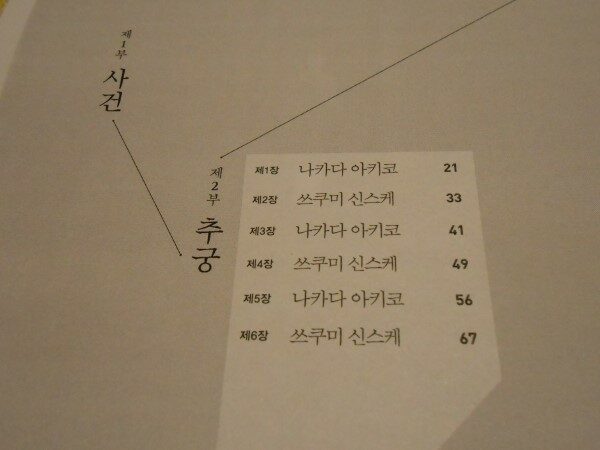 제1부
사건
제2부
추궁
제1장 나카다 아키코 21
제2장 쓰쿠미 신스케 33
제3장 나카다 아키코 41
제4장 쓰쿠미 신스케 49
제5장 나카다 아키코 56
제6장 쓰쿠미 신스케 67